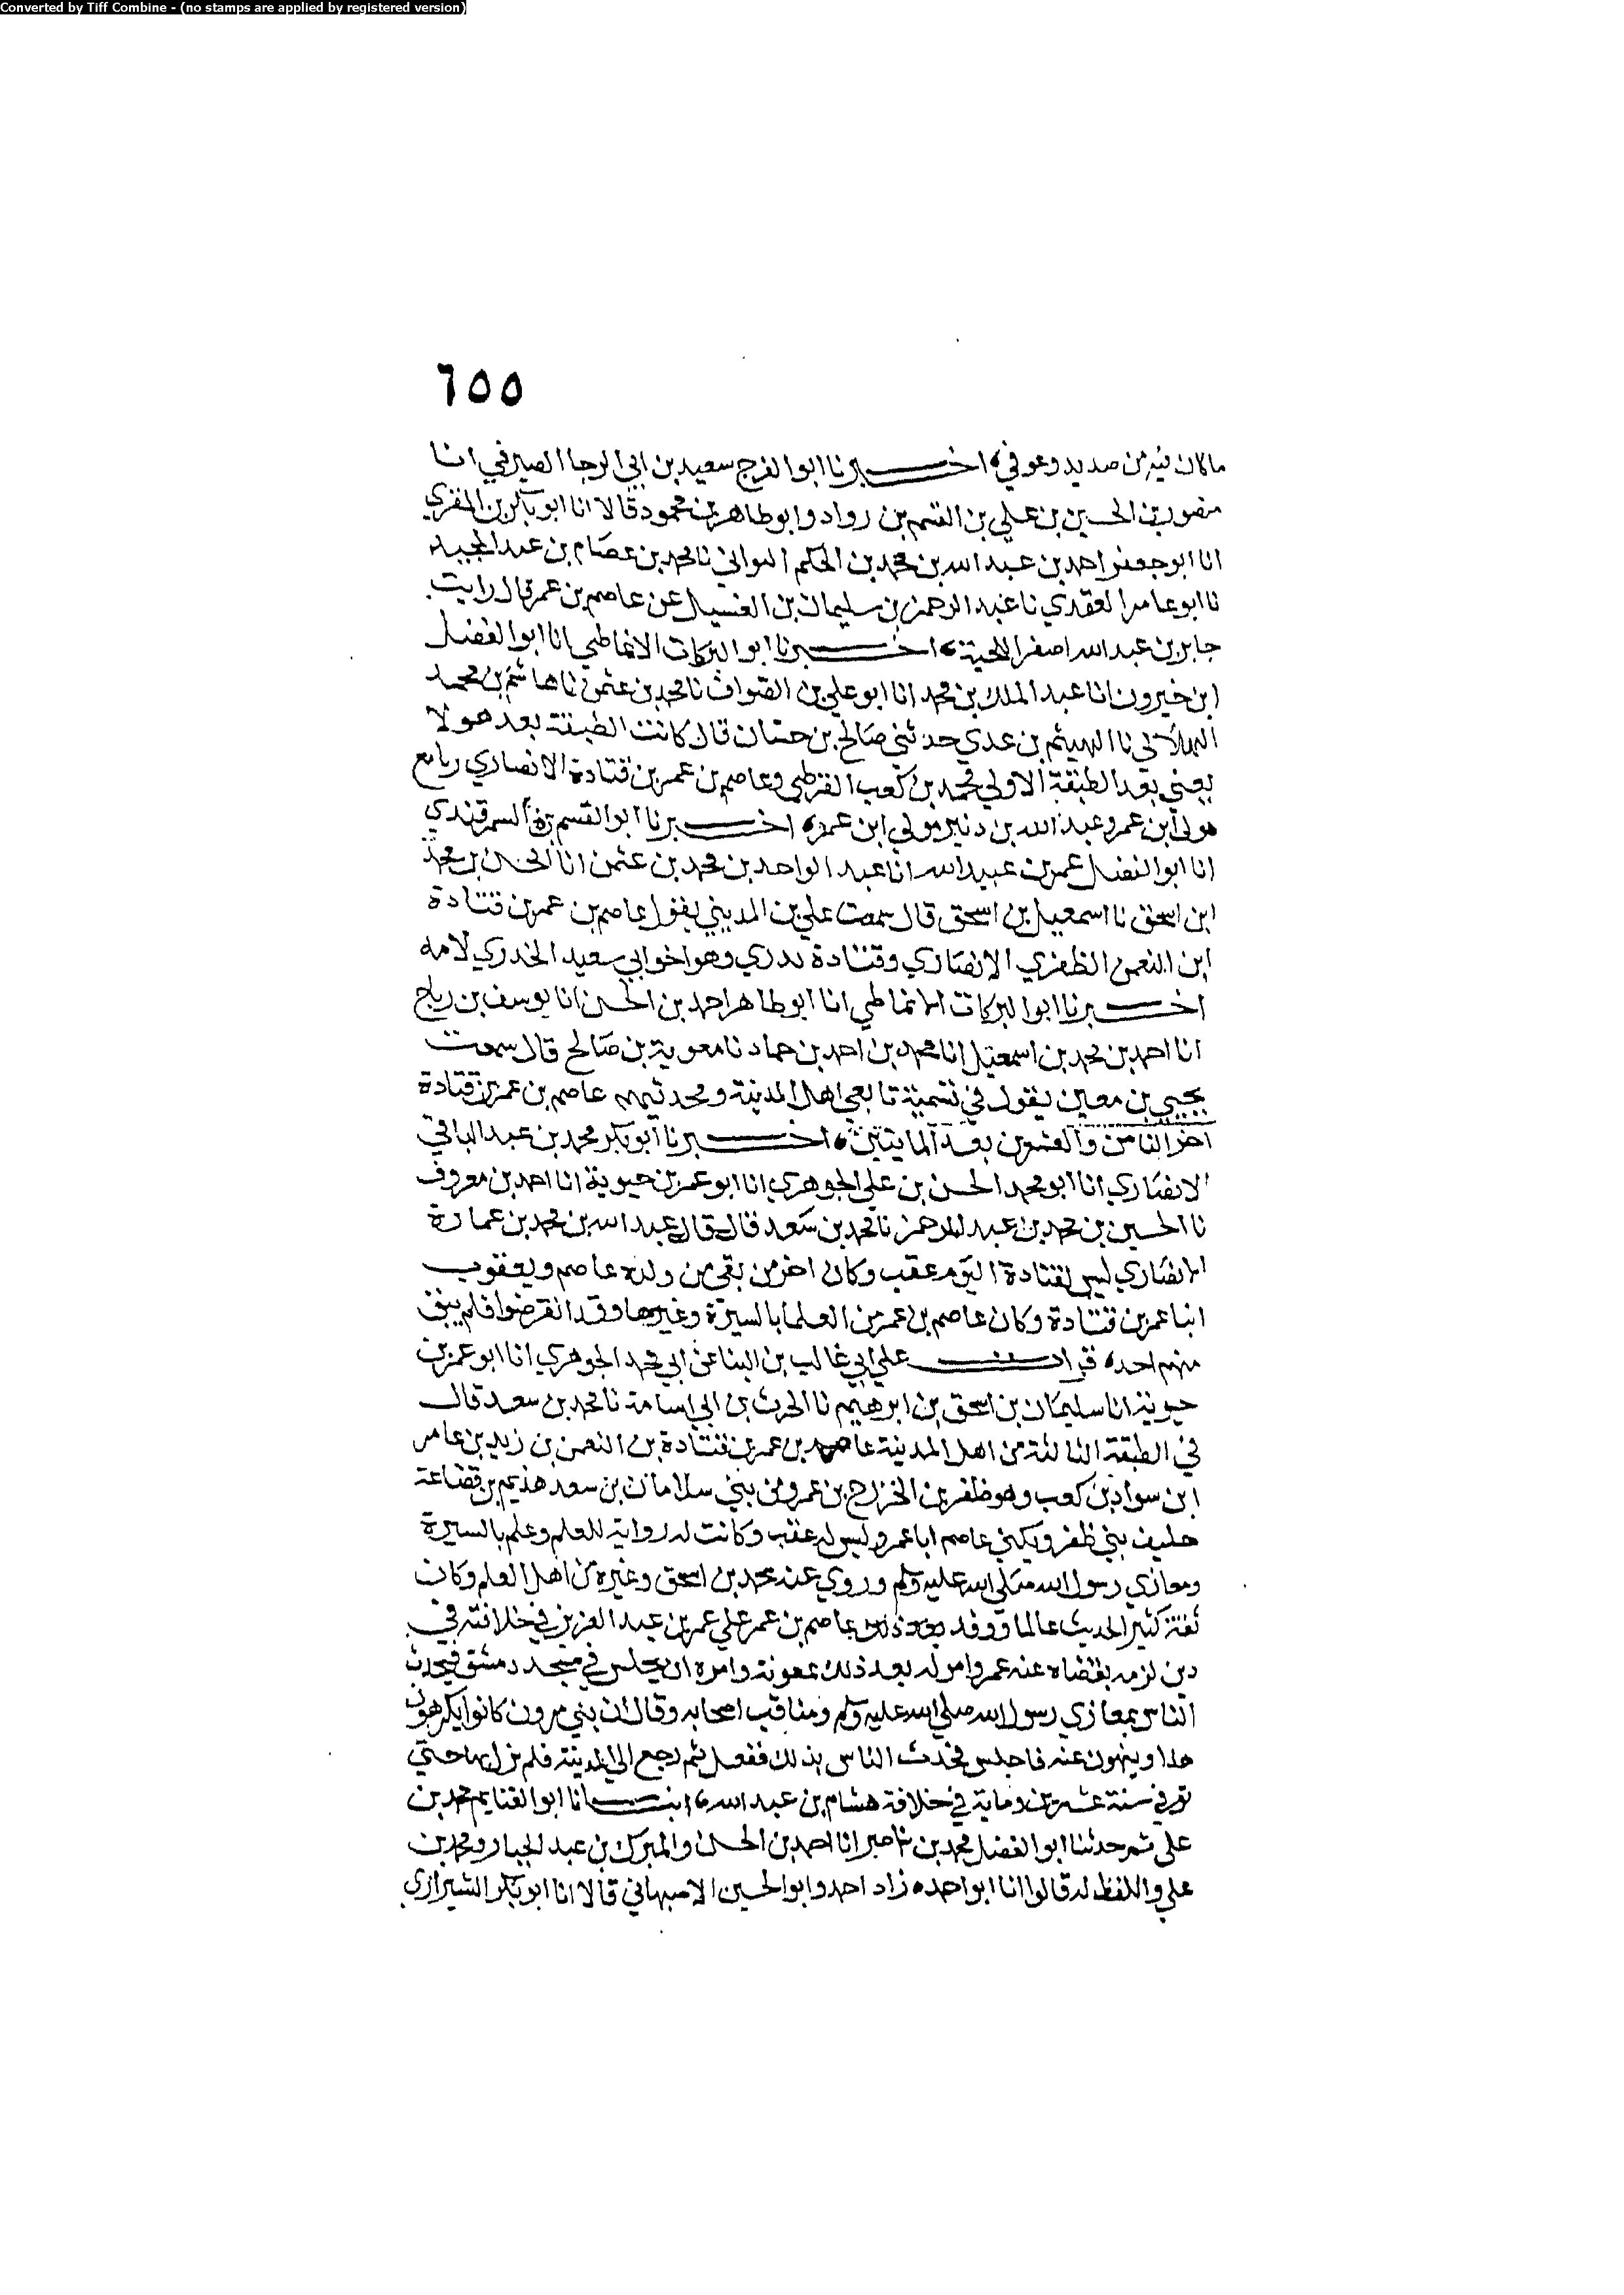 Converted by Tiff Combine - (no stamps are applied by registered version)
٦٥٥
ما كان فيه من صديد وعوفي اخبرنا ابوا لفرج سعيد بن ابي الرجا الصيرفي انا
منصور بن الحسين بن علي بن القسم بن رواد وابو طاهر بن محمود قالا انا ابو بكر بن المقري
انا ابو جعفر احمد بن عبد الله بن محمد بن الحكم نا محمد بن عصام بن عبد المجيد
نا ابو عامر العقدي نا عبد الرحمن بن سليمان بن الغسيل عن عاصم بن عمر قال رايت
جابر بن عبد الله اصفر اللحية اخبرنا ابو البركات الانماطي انا ابو الفضل
ابن خيرون انا عبد الملك بن محمد انا ابو علي بن الصواف نا محمد بن عثمن نا هاشم بن محمد
الهلالي نا الهيثم بن عدي حدثني صالح بن حسان قال كانت الطبقة بعد هولا
يعني بعد الطبقة الاولي محمد بن كعب القرظي وعاصم بن عمر بن قتادة الانصاري ونافع
مولي ابن عمر وعبد الله بن دنير مولي ابن عمر اخبرنا ابو القسم بن السمرقندي
انا ابو الفضل عمر بن عبيد الله انا عبد الواحد بن محمد بن عثمن انا الحسن بن محمد
ابن اسحق نا اسمعيل بن اسحق قال سمعت علي بن المديني يقول عاصم بن عمر بن قتادة
ابن النعمن الظفري الانصاري وقتادة بدري وهو اخو ابي سعيد الخدري لامه
اخبرنا ابو البركات الانماطي انا ابو طاهر احمد بن الحسن انا يوسف بن رباح
انا احمد بن محمد بن اسمعيل انا محمد بن احمد بن حماد نا معوية بن صالح قال سمعت
يحيي بن معين يقول في تسمية تابعي اهل المدينة ومحدثيهم عاصم بن عمر بن قتادة
اخر الثامن والعشرين بعد المايتين اخبرنا ابو بكر محمد بن عبد الباقي
الانصاري انا ابو محمد الحسن بن علي الجوهري انا ابو عمر بن حيوية انا احمد بن معروف
نا الحسين بن محمد بن عبد الرحمن نا محمد بن سعد قال قال عبد الله بن محمد بن عمارة
الانصاري ليس لقتادة اليوم عقب وكان اخر من بقي من ولده عاصم ويعقوب
ابنا عمر بن قتادة وكان عاصم بن عمر من العلما بالسيرة وغيرها وقد انقرضوا فلم يبق
منهم احد قرات علي ابي غالب بن البنا عن ابي محمد الجوهري انا ابو عمر بن
حيوية انا سليمان بن اسحق بن ابرهيم نا الحرث بن ابي اسامة نا محمد بن سعد قال
في الطبقة الثالثة من اهل المدينة عاصم بن عمر بن قتادة بن النعمن بن زيد بن عامر
ابن سواد بن كعب وهو ظفر بن الخزرج بن عمرو من بني سلامان بن سعد هذيم بن قضاعة
حليف بني ظفر ويكني عاصم ابا عمر وليس له عقب وكانت له رواية للعلم وعلم بالسيرة
ومغازي رسول الله صلي الله عليه وسلم وروي عنه محمد بن اسحق وغيره من اهل العلم وكان
ثقة كثير الحديث عالما ووفد بعد ذلك عاصم بن عمر علي عمر بن عبد العزيز في خلافته في
دين لزمه فقضاه عنه عمر وامر له بعد ذلك بمعونة وامره ان يجلس في مسجد دمشق فيحدث
الناس بمغازي رسول الله صلي الله عليه وسلم ومناقب اصحابه وقال ان بني مرون كانوا يكرهون
هذا وينهون عنه فاجلس فحدث الناس بذلك ففعل ثم رجع الي المدينة فلم يزل بها حتي
توفي سنة عشرين وماية في خلافة هشام بن عبد الله انبانا ابو الغنايم محمد بن
علي ثم حدثنا ابو الفضل محمد بن ناصر انا احمد بن الحسن والمبرك بن عبد الجبار ومحمد بن
علي واللفظ له قالوا انا ابو احمد زاد احمد وابو الحسين الاصبهاني قالا انا ابو بكر الشيرازي